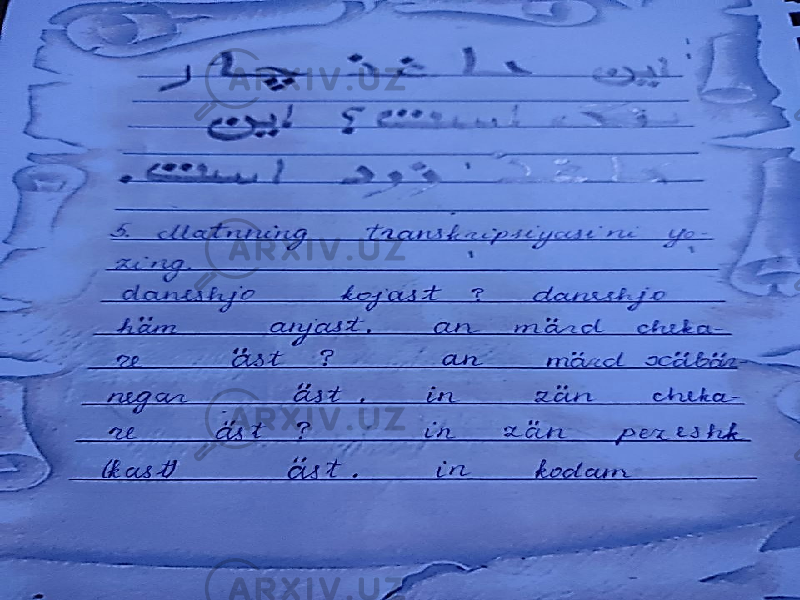 این
است؟ این
است.
5. Matnning transkripsiyasini yo-
zing.
daneshjo kojast ? daneshjo
häm anjast. an märd cheka-
re äst ? an märd xäbär-
negar äst. in zän cheka-
re äst ? in zän pezeshk
(kast) äst. in kodam
ARXIV.UZ
ARXIV.UZ
ARXIV.UZ
ARXIV.UZ